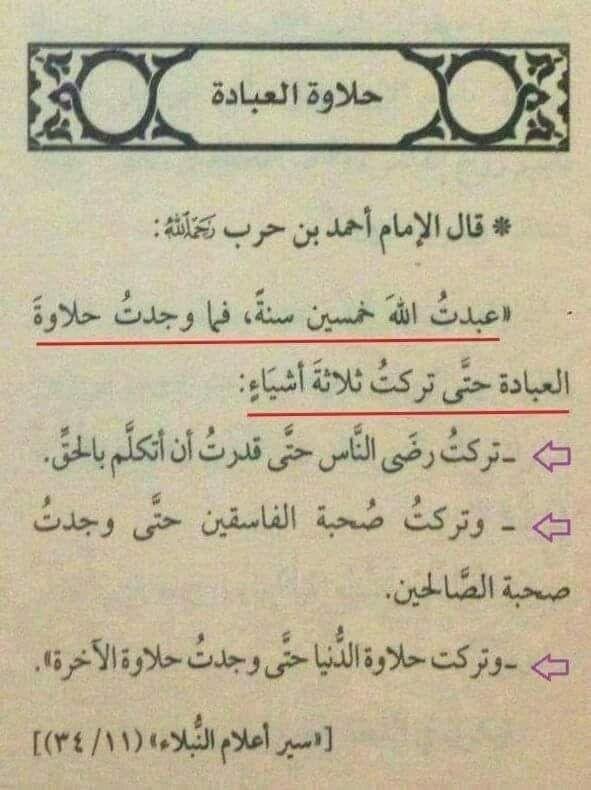 حلاوة العبادة
* قال الإمام أحمد بن حرب رَحِمَهُ اللهُ:
«عبدتُ اللهَ خمسين سنةً، فما وجدتُ حلاوةَ
العبادة حتَّى تركتُ ثلاثةَ أشيَاءٍ:
- تركتُ رضَى النَّاس حتَّى قدرتُ أن أتكلَّم بالحقِّ.
- وتركتُ صُحبة الفاسقين حتَّى وجدتُ
صحبة الصَّالحين.
- وتركت حلاوة الدُّنيا حتَّى وجدتُ حلاوة الآخرة».
[«سير أعلام النُّبلاء» (١١/ ٣٤)]